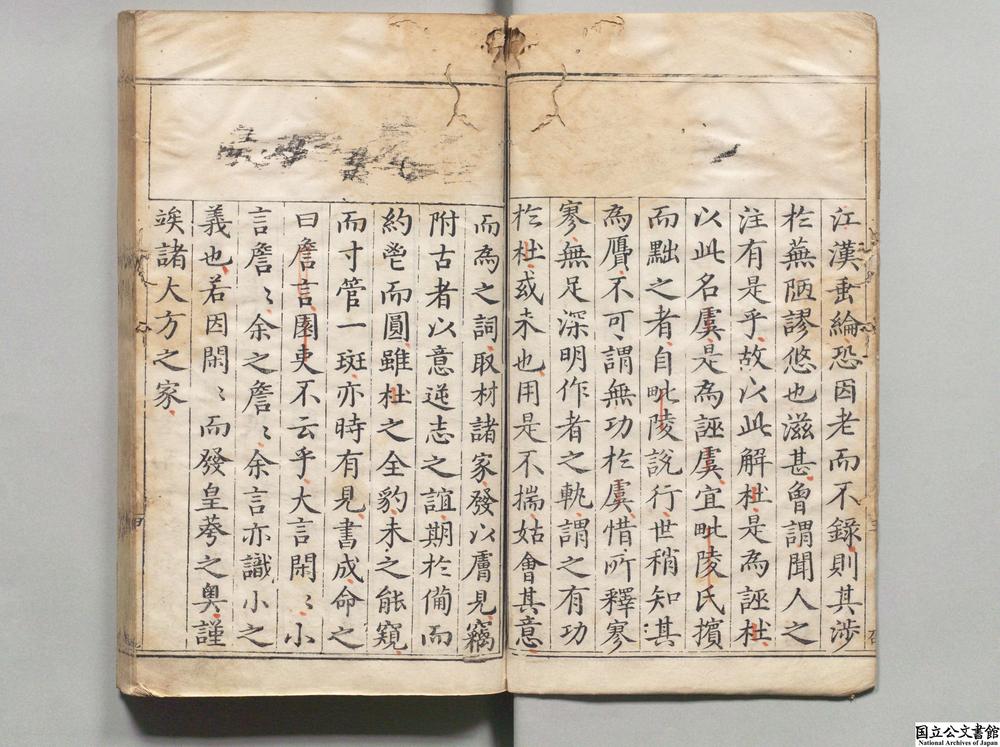 江漢垂綸恐因老而不錄則其涉
於蕪陋謬悠也滋甚曾謂聞人之
注有是乎故以此解杜是為誣杜
以此名虞是為誣虞宜毗陵氏擯
而黜之者自毗陵說行世稍知其
為贋不可謂無功於虞惜所釋寥
寥無足深明作者之軌謂之有功
於杜或未也用是不揣姑會其意
而為之詞取材諸家發以膚見竊
附古者以意逆志之誼期於備而
約鬯而圓雖杜之全豹未之能窺
而寸管一斑亦時有見書成命之
曰詹言園吏不云乎大言閑〻小
言詹〻余之詹〻余言亦識小之
義也若因閑〻而發皇蕚之奧謹
竢諸大方之家
国立公文書館
National Archives of Japan